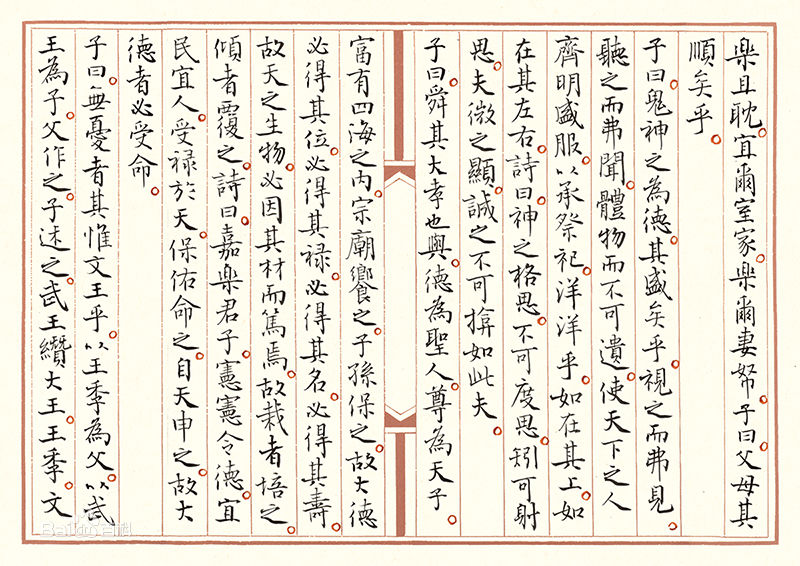 樂且耽。宜爾室家。樂爾妻帑。子曰。父母其
順矣乎。
子曰。鬼神之為德。其盛矣乎。視之而弗見。
聽之而弗聞。體物而不可遺。使天下之人
齊明盛服。以承祭祀。洋洋乎。如在其上。如
在其左右。詩曰。神之格思。不可度思。矧可射
思。夫微之顯。誠之不可揜如此夫。
子曰。舜其大孝也與。德為聖人。尊為天子。
富有四海之內。宗廟饗之。子孫保之。故大德
必得其位。必得其祿。必得其名。必得其壽。
故天之生物。必因其材而篤焉。故栽者培之。
傾者覆之。詩曰。嘉樂君子。憲憲令德。宜
民宜人。受祿於天。保佑命之。自天申之。故大
德者必受命。
子曰。無憂者其惟文王乎。以王季為父。以武
王為子。父作之。子述之。武王纘大王王季文
Baidu百科